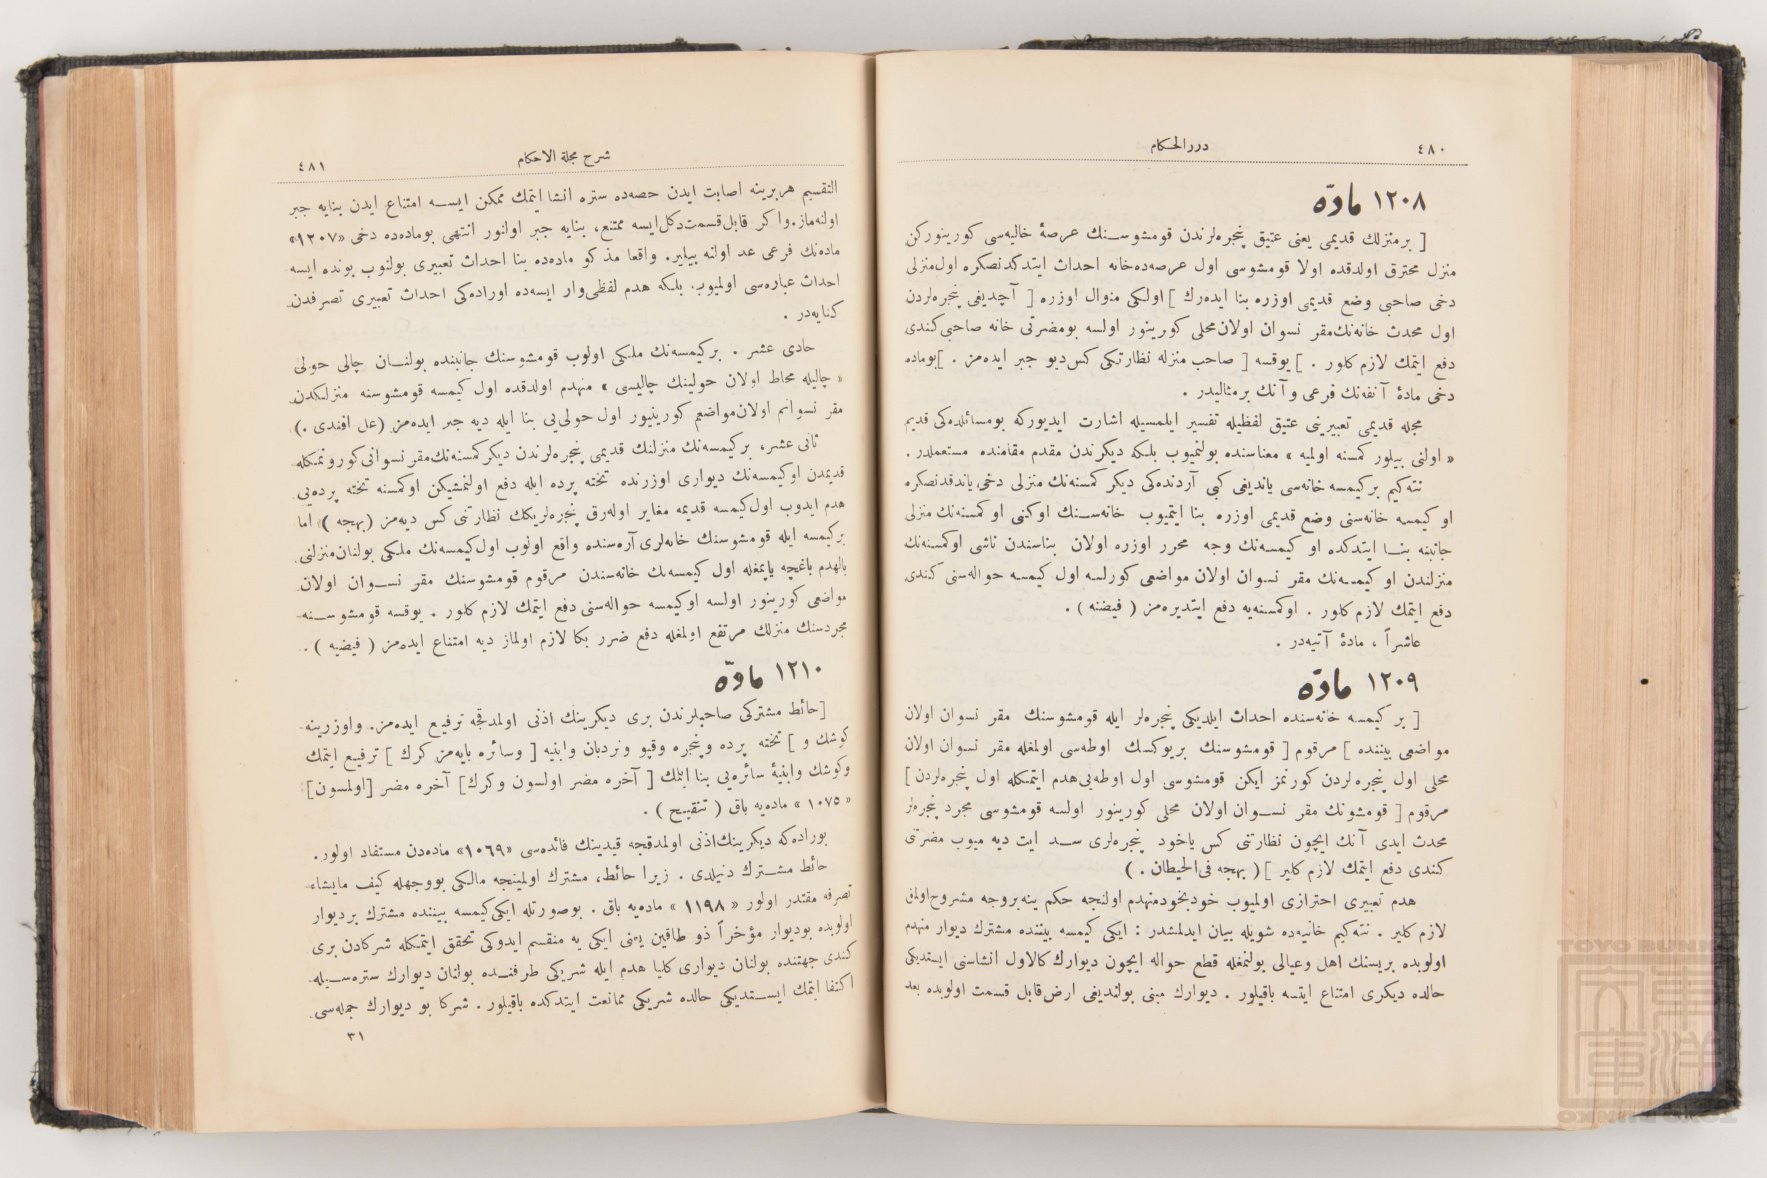 ٤٨٠
دررالحكام
١٢٠٨ مادّه
[ برمنزلك قديمى يعنى عتيق پنجره‌لرندن قومشوسنك عرصهٔ خاليه‌سى كورينوركن
منزل محترق اولدقده اولا قومشوسى اول عرصه‌ده‌خانه احداث ايتدكدنصكره اول‌منزلى
دخى صاحبى وضع قديمى اوزره بنا ايده‌رك ] اولكى منوال اوزره [ آچديغى پنجره‌لردن
اول محدث خانه‌نك‌مقر نسوان اولان‌محلى كورينور اولسه بومضرتى خانه صاحبى‌كندى
دفع ايتمك لازم كلور . ] يوقسه [ صاحب منزله نظارتكى كس‌ديو جبر ايده‌مز . ]بوماده
دخى مادهٔ آنفه‌نك فرعى وآنك برمثاليدر .
مجله قديمى تعبيرينى عتيق لفظيله تفسير ايلمسيله اشارت ايديوركه بومسائلده‌كى قديم
« اولنى بيلور كمسنه اولميه » معناسنده بولنميوب بلكه ديكرندن مقدم مقامنده مستعملدر .
نته‌كيم بركيمسه خانه‌سى ياندينى كبى آردنده‌كى ديكر كمسنه‌نك منزلى دخى ياندقدنصكره
او كيمسه خانه‌سنى وضع قديمى اوزره بنا ايتميوب خانه‌سنك اوكنى او كمسنه‌نك منزلى
جانبنه بنا ايتدكده او كيمسه‌نك وجه محرر اوزره اولان بناسندن ناشى اوكمسنه‌نك
منزلندن او كيمسه‌نك مقر نسوان اولان مواضعى كورلسه اول كيمسه حواله‌سنى كندى
دفع ايتمك لازم كلور . اوكمسنه‌يه دفع ايتديره‌مز ( فيضيه ) .
عاشراً ، مادهٔ آتيه‌در .
١٢٠٩ مادّه
[ بر كيمسه خانه‌سنده احداث ايلديكى پنجره‌لر ايله قومشوسنك مقر نسوان اولان
مواضعى بيننده ] مرقوم [ قومشوسنك بريوكسك اوطه‌سى اولمغله مقر نسوان اولان
محلى اول پنجره‌لردن كورنمز ايكن قومشوسى اول اوطه‌يى‌هدم ايتمكله اول پنجره‌لردن ]
مرقوم [ قومشونك مقر نسوان اولان محلى كورينور اولسه قومشوسى مجرد پنجره‌لر
محدث ايدى آنك ايچون نظارتنى كس ياخود پنجره‌لرى سد ايت ديه ميوب مضرتنى
كندى دفع ايتمك لازم كلير ] ( بهجه فى‌الحيطان . )
هدم تعبيرى احترازى اولميوب خودبخودمنهدم اولنجه حكم ينه‌بروجه مشروح‌اولمق
لازم كلير . نته‌كيم خانيه‌ده شويله بيان ايدلمشدر : ايكى كيمسه بيننده مشترك ديوار منهدم
اولوبده بريسنك اهل وعيالى بولنمغله قطع حواله ايچون ديوارك كالاول انشاسنى ايستديكى
حالده ديكرى امتناع ايتسه باقيلور . ديوارك مبنى بولنديغى ارض‌قابل قسمت اولوبده بعد
شرح مجلة الاحكام
٤٨١
التقسيم هربرينه اصابت ايدن حصه‌ده ستره انشا ايتمك ممكن ايسه امتناع ايدن بنايه جبر
اولنه‌ماز.واكر قابل‌قسمت‌دكل‌ايسه ممتنع، بنايه جبر اولنور انتهى بوماده‌ده دخى «١٢٠٧»
ماده‌نك فرعى عد اولنه بيلير. واقعا مذكو ماده‌ده بنا احداث تعبيرى بولنوب بونده ايسه
احداث عباره‌سى اولميوب. بلكه هدم لفظى‌وار ايسه‌ده اوراده‌كى احداث تعبيرى تصرفدن
كنايه‌در .
حادى عشر . بركيمسه‌نك ملكى اولوب قومشوسنك جانبنده بولنان چالى حولى
« چاليله محاط اولان حولينك چاليسى » منهدم اولدقده اول كيمسه قومشوسنه منزلكدن
مقر نسوانم اولان‌مواضع كورينيور اول حولى‌يى بنا ايله ديه جبر ايده‌مز (على افندى .)
ثانى عشر، بركيمسه‌نك منزلنك قديمى پنجره‌لرندن ديكركمسنه‌نك‌مقر نسوانى‌كورونمكله
قديمدن اوكيمسه‌نك ديوارى اوزرنده تخته پرده ايله دفع اولنمشيكن اوكمسنه تخته پرده‌يى
هدم ايدوب اول‌كيمسه قديمه مغاير اوله‌رق پنجره‌لريكك نظارتنى كس ديه‌مز (بهجه ) اما
بركيمسه ايله قومشوسنك خانه‌لرى آره‌سنده واقع اولوب اول‌كيمسه‌نك ملكى بولنان‌منزلنى
بالهدم باغچه ياپمغله اول كيمسه‌نك خانه‌سندن مرقوم قومشوسنك مقر نسوان اولان
مواضعى كورينور اولسه اوكيمسه حواله‌سنى دفع ايتمك لازم كلور . يوقسه قومشوسنه
مجردسنك منزلك مرتفع اولمغله دفع ضرر بكا لازم اولماز ديه امتناع ايده‌مز ( فيضيه ) .
١٢١٠ مادّه
[حائط مشتركى صاحبلرندن برى ديكرينك اذنى اولمدقجه ترفيع ايده‌مز. واوزرينه
كوشك و ] تخته پرده وپنجره وقپو ونردبان وابنيه [ وسائره ياپه‌مز كرك ] ترفيع ايتمك
وكوشك وابنيهٔ سائره‌يى بنا ايتمك [ آخره مضر اولسون وكرك] آخره مضر [اولمسون]
« ١٠٧٥ » ماده‌يه باق ( تنقيح ) .
بوراده‌كه ديكرينك‌اذنى اولمدقجه قيدينك فائده‌سى «١٠٦٩» ماده‌دن مستفاد اولور.
حائط مشترك دنيلدى . زيرا حائط، مشترك اولمينجه مالكى بووجهله كيف مايشاء
تصرفه مقتدر اولور « ١١٩٨ » ماده‌يه باق . بوصورتله ايكى‌كيمسه بيننده مشترك برديوار
اولوبده بوديوار مؤخراً ذو طاقين يعنى ايكى يه منقسم ايدوكى تحقق ايتمكله شركادن برى
كندى جهتنده بولنان ديوارى كليا هدم ايله شريكى طرفنده بولنان ديوارك ستره‌سيله
اكتفا ايتمك ايستديكى حالده شريكى ممانعت ايتدكده باقيلور . شركا بو ديوارك جمله‌سى
٣١
TOYO BUNKO
東洋文庫
TOYO BUNKO